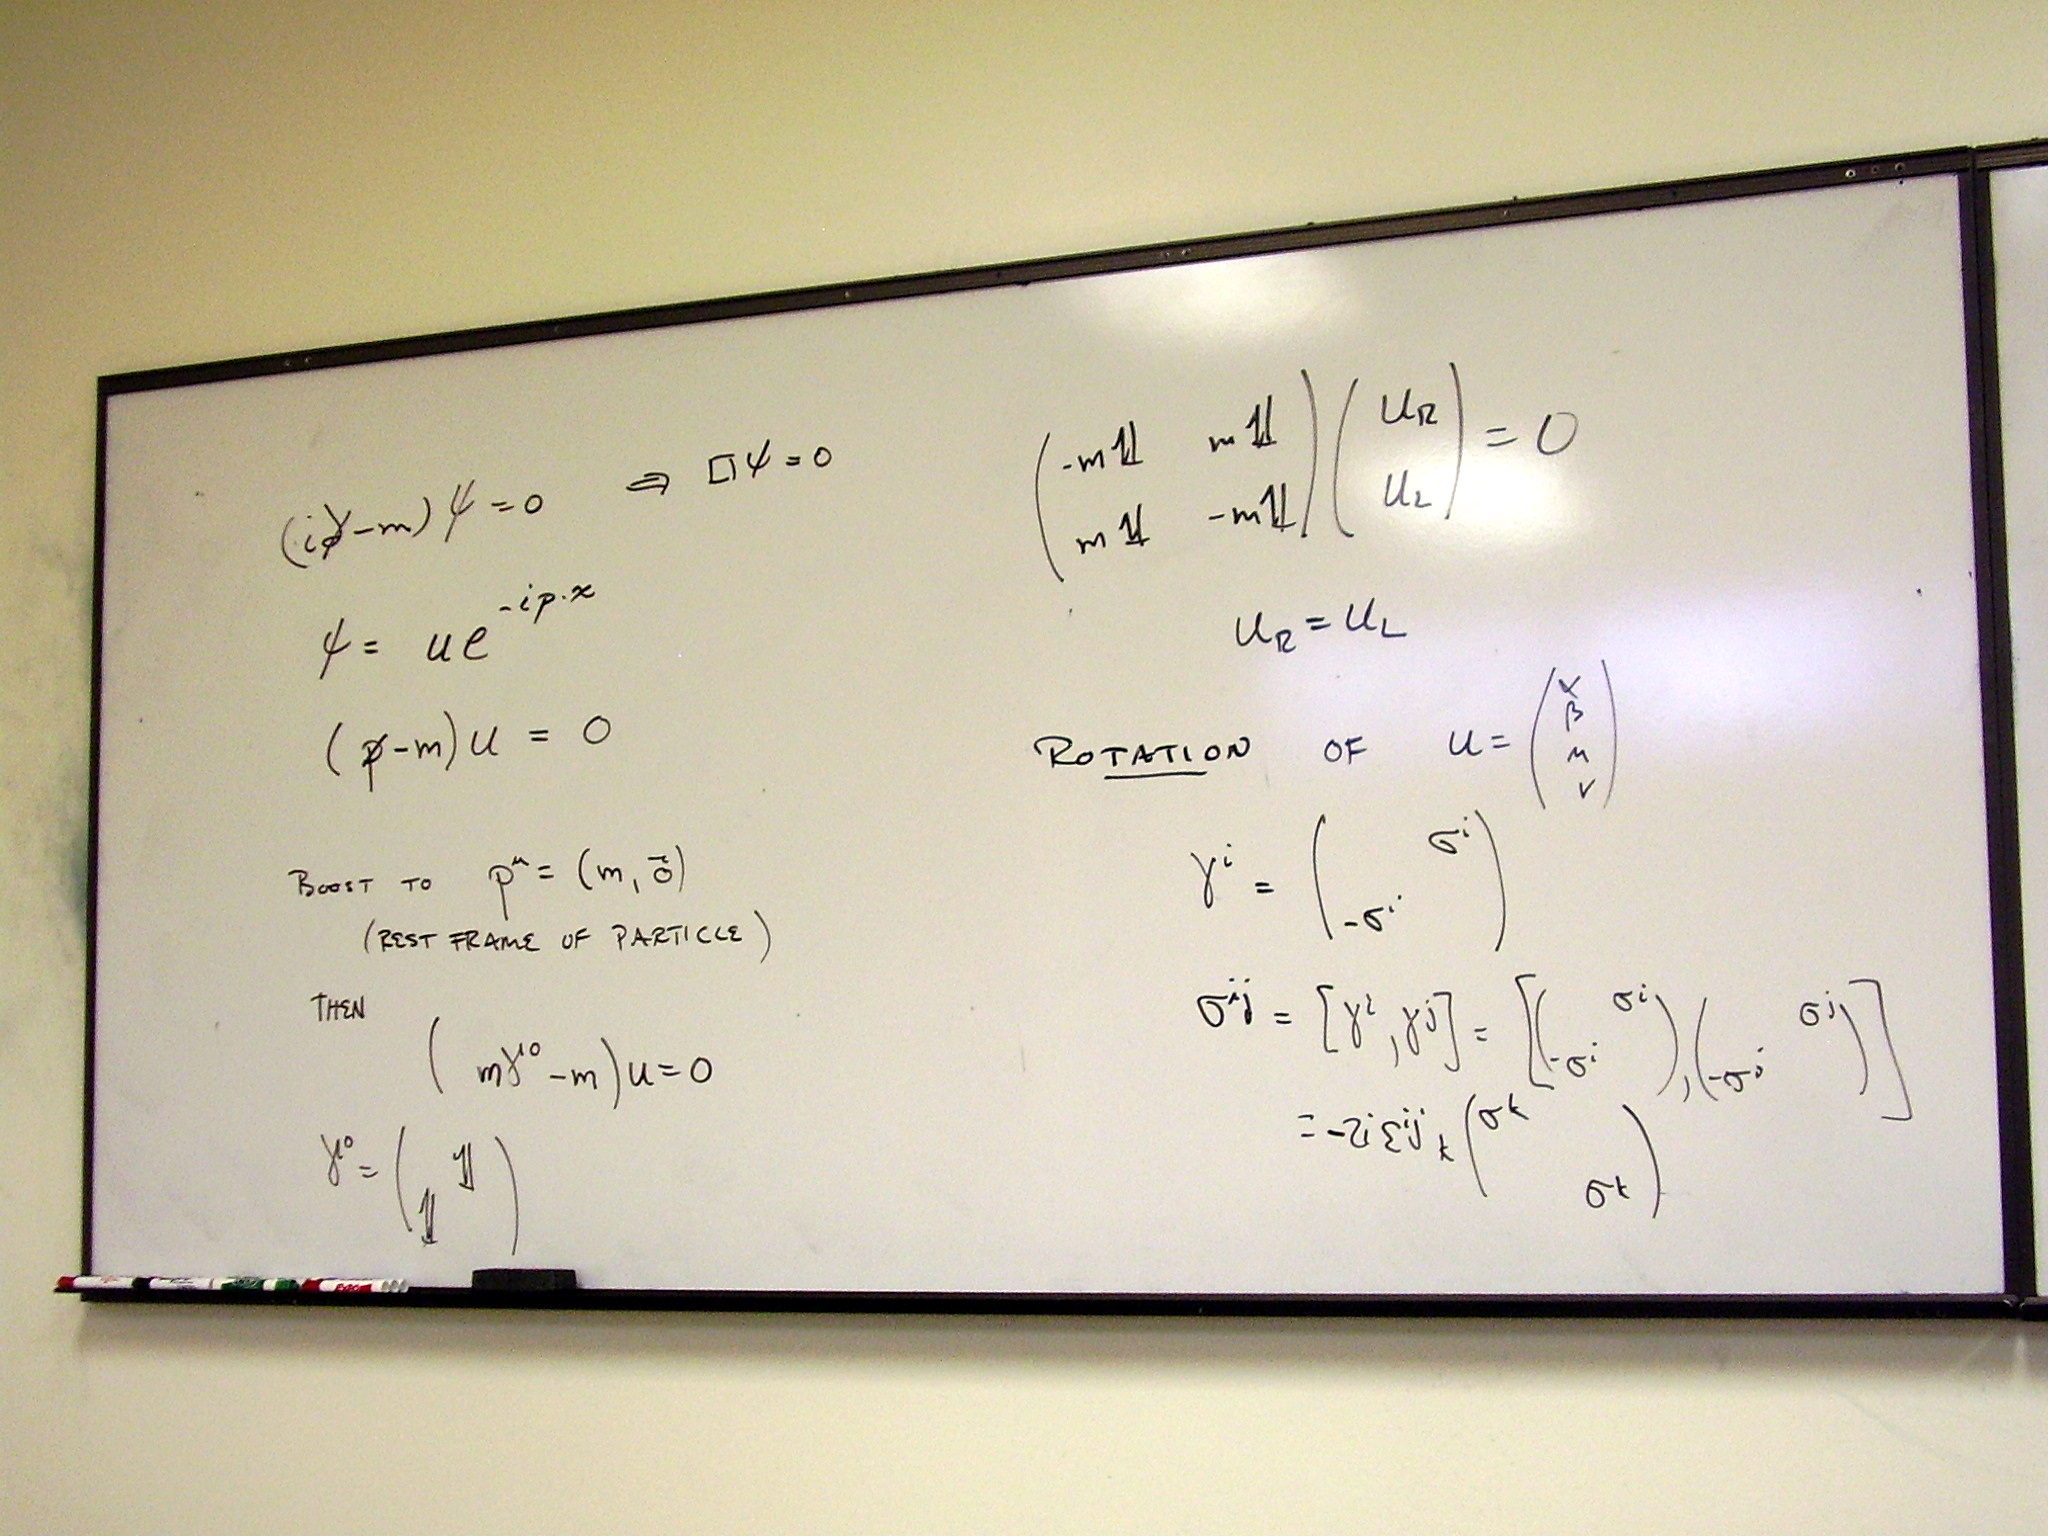 (i∂̸ - m)ψ = 0 ⇒ □ψ = 0
ψ = u e^{-ip·x}
(p̸ - m)u = 0
BOOST TO p^μ = (m, 0⃗)
(REST FRAME OF PARTICLE)
THEN
(mγ^0 - m)u = 0
γ^0 = ( 𝟙
𝟙 )
( -m𝟙 m𝟙 ) ( u_R ) = 0
( m𝟙 -m𝟙 ) ( u_L )
u_R = u_L
ROTATION OF u = ( α
β
μ
ν )
γ^i = ( σ^i
-σ^i )
σ^{ij} = [γ^i, γ^j] = [( σ^i
-σ^i ), ( σ^j
-σ^j )]
= -2i ε^{ij}_k ( σ^k
σ^k )